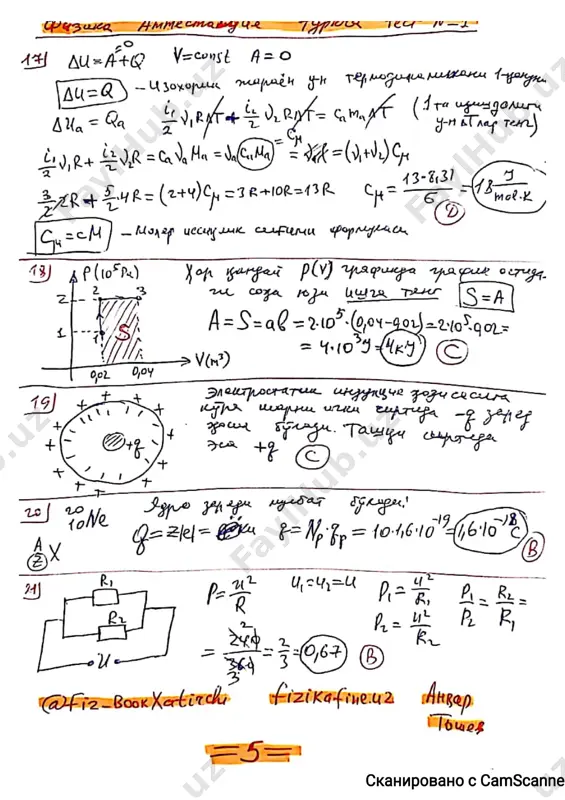 Физика Аттестация Туркум Тест №-1
17) ΔU=A+Q V=const A=0
=0
ΔU=Q - Изохорик жараён у-н термодинамиканинг 1-қонуни
ΔUa = Qa i₁/2 ν₁RΔT + i₂/2 ν₂RΔT = CamaΔT
i₁/2 ν₁R + i₂/2 ν₂R = Ca νa Ma = νa Ca Ma = = (ν₁+ν₂)Cμ
Cμ
3/2 2R + 5/2 ·4R = (2+4)Cμ = 3R+10R = 13R Cμ = 13·8,31/6 = 18 J/mol·K
D
Cμ = cM - Моляр иссиқлик сиғими формуласи
18) P(10⁵Pa) Ҳар қандай P(V) графикда график остидаги
соҳа юзи ишга тенг S=A
2 2 3
1 1 S
A = S = ab = 2·10⁵·(0,04-0,02) = 2·10⁵·0,02 =
= 4·10³J = 4kJ C
0,02 0,04 V(м³)
19) Электростатик индукция ҳодисасига
кўра шарнинг ички сиртида -q заряд
ҳосил бўлади. Ташқи сиртида
эса +q C
+q
20) 20 10 Ne Ядро заряди мусбат бўлади!
A Z X q = z|e| = q = Np·qp = 10·1,6·10⁻¹⁹ = 1,6·10⁻¹⁸ C
B
21) R₁ P = u²/R u₁=u₂=u P₁ = u²/R₁ P₁/P₂ = R₂/R₁
R₂ P₂ = u²/R₂
u = 240/360 = 2/3 = 0,67 B
@Fiz_BookXatirchi fizikafine.uz Анвар
Тошев
=5=
FaylHub.uz
Сканировано с CamScanne